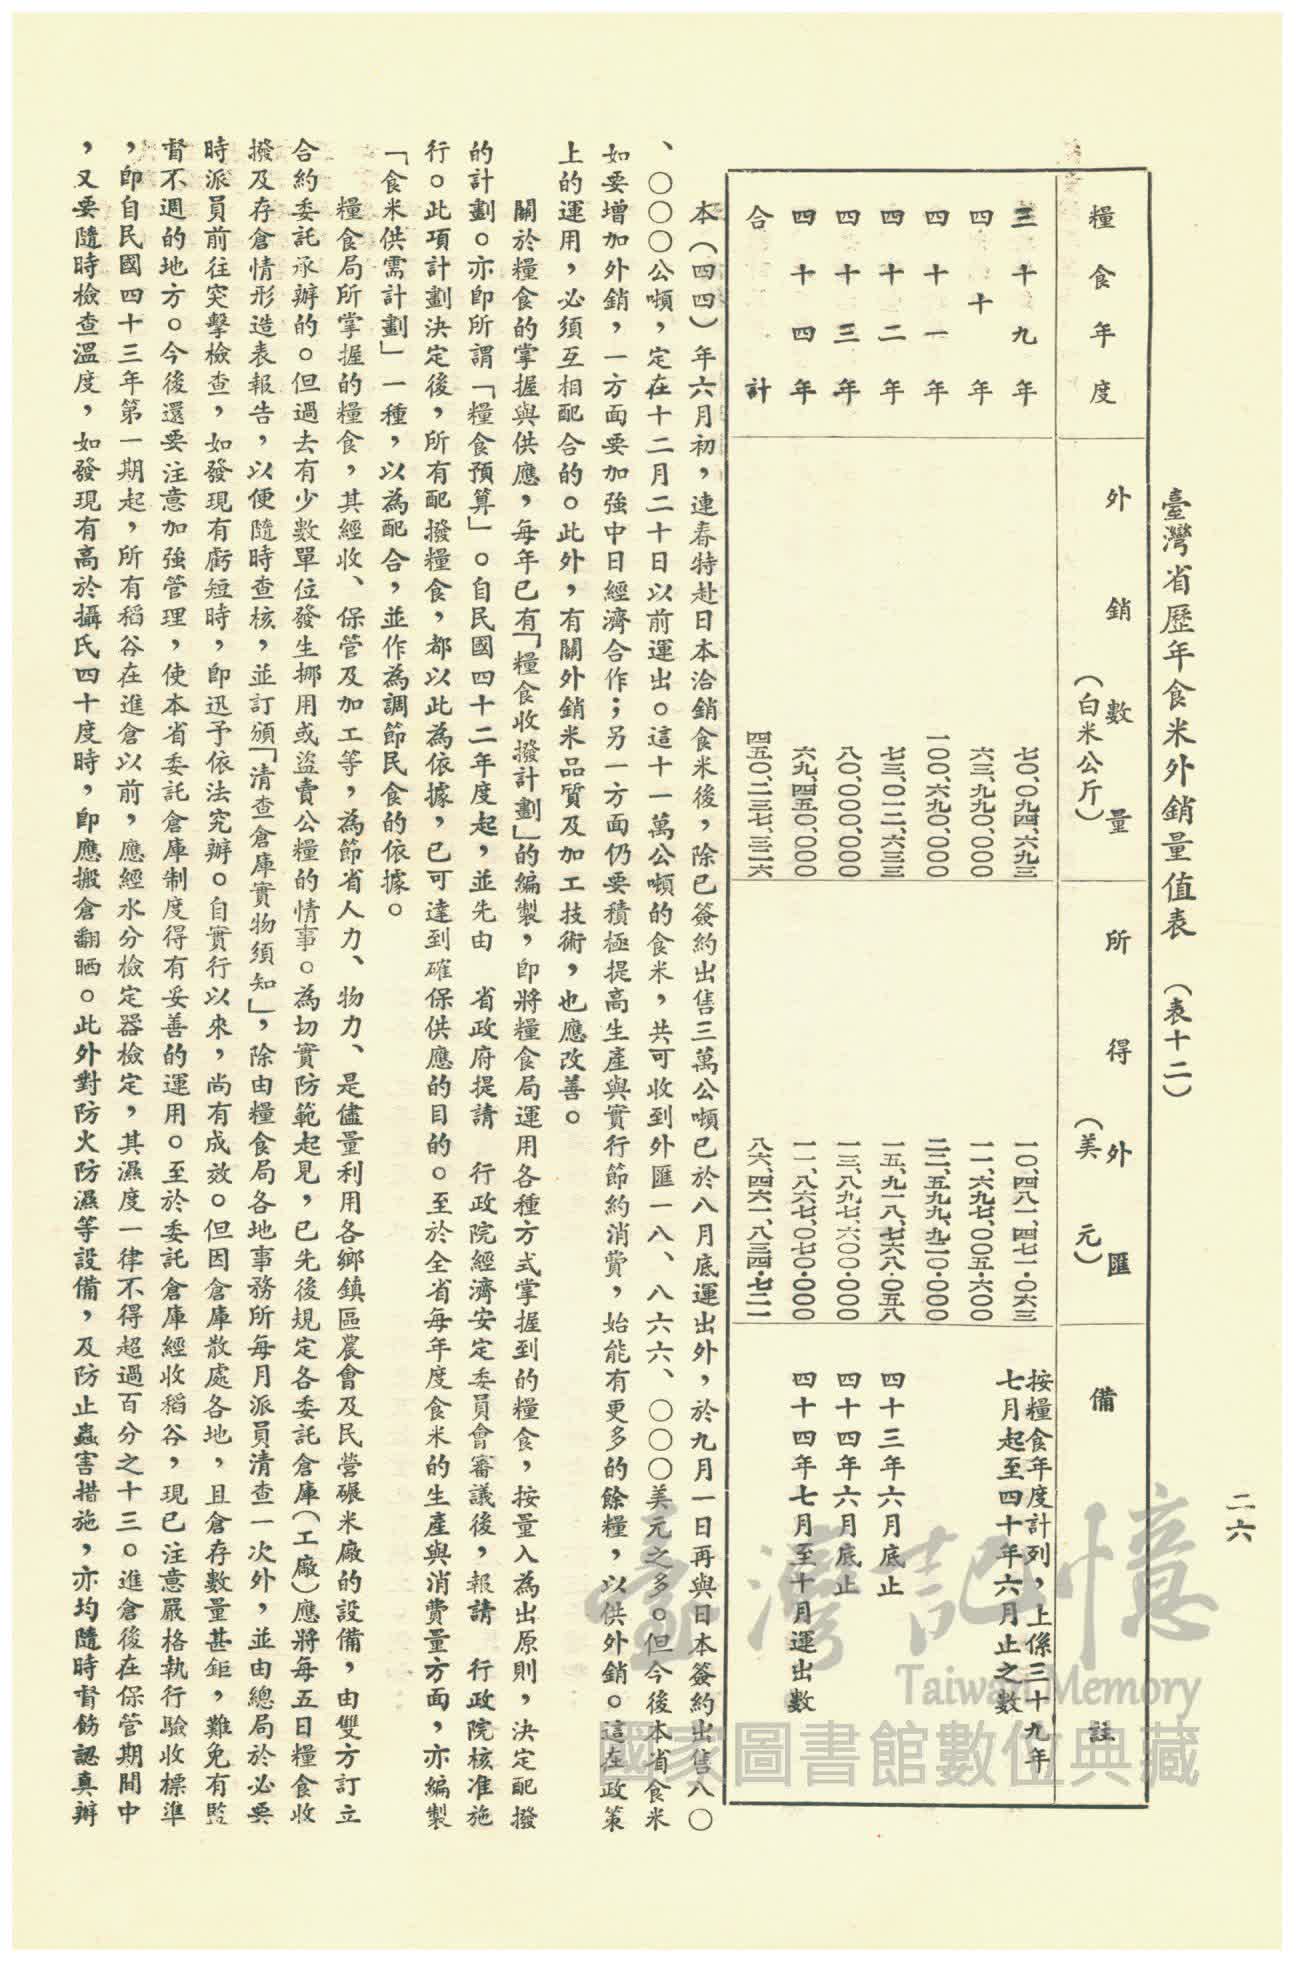 二六
臺灣省歷年食米外銷量值表　（表十二）
糧食年度　外銷數量（白米公斤）　所得外匯（美元）　備註
三十九年　七〇、〇九四、六九三　一〇、四八一、四七一·〇六三　按糧食年度計列，上係三十九年七月起至四十年六月止之數
四十年　六三、九九〇、〇〇〇　一一、六九七、〇〇五·六〇〇
四十一年　一〇〇、六九〇、〇〇〇　二二、五九九、九二〇·〇〇〇
四十二年　七三、〇一二、六三三　一五、九一八、七六八·〇五八　四十三年六月底止
四十三年　八〇、〇〇〇、〇〇〇　一三、八九七、六〇〇·〇〇〇　四十四年六月底止
四十四年　六九、四五〇、〇〇〇　一一、八六七、〇七〇·〇〇〇　四十四年七月至十月運出數
合計　四五〇、二三七、三二六　八六、四六一、八三四·七二一
本（四四）年六月初，連春特赴日本洽銷食米後，除已簽約出售三萬公噸已於八月底運出外，於九月一日再與日本簽約出售八〇
、〇〇〇公噸，定在十二月二十日以前運出。這十一萬公噸的食米，共可收到外匯一八、八六六、〇〇〇美元之多。但今後本省食米
如要增加外銷，一方面要加強中日經濟合作；另一方面仍要積極提高生產與實行節約消費，始能有更多的餘糧，以供外銷。這在政策
上的運用，必須互相配合的。此外，有關外銷米品質及加工技術，也應改善。
關於糧食的掌握與供應，每年已有「糧食收撥計劃」的編製，即將糧食局運用各種方式掌握到的糧食，按量入為出原則，決定配撥
的計劃。亦即所謂「糧食預算」。自民國四十二年度起，並先由　省政府提請　行政院經濟安定委員會審議後，報請　行政院核准施
行。此項計劃決定後，所有配撥糧食，都以此為依據，已可達到確保供應的目的。至於全省每年度食米的生產與消費量方面，亦編製
「食米供需計劃」一種，以為配合，並作為調節民食的依據。
糧食局所掌握的糧食，其經收、保管及加工等，為節省人力、物力、是儘量利用各鄉鎮區農會及民營碾米廠的設備，由雙方訂立
合約委託承辦的。但過去有少數單位發生挪用或盜賣公糧的情事。為切實防範起見，已先後規定各委託倉庫（工廠）應將每五日糧食收
撥及存倉情形造表報告，以便隨時查核，並訂頒「清查倉庫實物須知」，除由糧食局各地事務所每月派員清查一次外，並由總局於必要
時派員前往突擊檢查，如發現有虧短時，即迅予依法究辦。自實行以來，尚有成效。但因倉庫散處各地，且倉存數量甚鉅，難免有監
督不週的地方。今後還要注意加強管理，使本省委託倉庫制度得有妥善的運用。至於委託倉庫經收稻谷，現已注意嚴格執行驗收標準
，即自民國四十三年第一期起，所有稻谷在進倉以前，應經水分檢定器檢定，其濕度一律不得超過百分之十三。進倉後在保管期間中
，又要隨時檢查溫度，如發現有高於攝氏四十度時，即應搬倉翻晒。此外對防火防濕等設備，及防止蟲害措施，亦均隨時督飭認真辦
臺灣記憶
Taiwan Memory
國家圖書館數位典藏